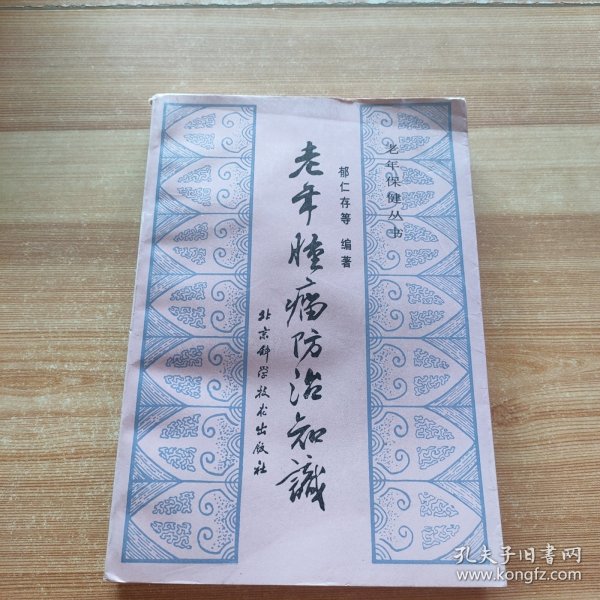 老年保健丛书
郁仁存等 编著
老年腫瘤防治知識
北京科学技术出版社
孔夫子旧书网
www.kongfz.com